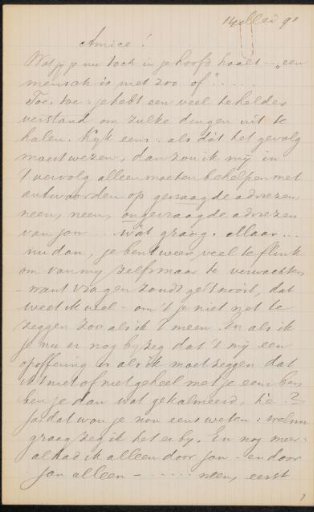 14 Mei 90
Amice!
Wat je nu toch in je hoofd haalt – "een
mensch is met zoo of" ...
Toe, toe – je hebt een veel te helder
verstand om zulke dingen uit te
halen. Kijk eens – als dàt het gevolg
moet wezen, dan zou ik mij in
't vervolg alleen moeten behelpen met
antwoorden op gevraagde adviezen
neen, neen, ongevraagde adviezen
van jou ... wat graag. Maar ...
nu dan, je bent weer veel te flink
om van mij zelfs maar te verwachten
– want vragen zoudt ge 't nooit, dat
weet ik wel – om 't je niet zet te
zeggen zoo als ik 't meen. En als ik
je nu er nog bij zeg dat 't mij een
opoffering is als ik moet zeggen dat
ik 't niet of niet geheel met je eens ben
ben je dan wat gekalmeerd, hè?
Ja dat wou je nou eens weten: welnu
graag zeg ik het erbij. En nog
al had ik alleen door jou – en door
jou alleen – ...... eerst